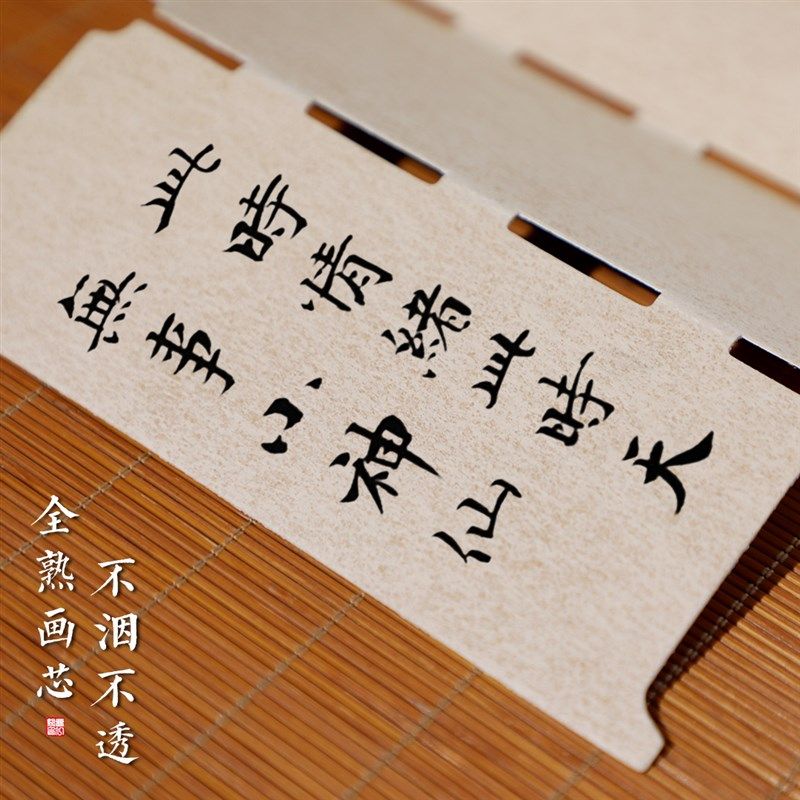 此時情緒此時天
無事小神仙
不洇不透
全熟画芯